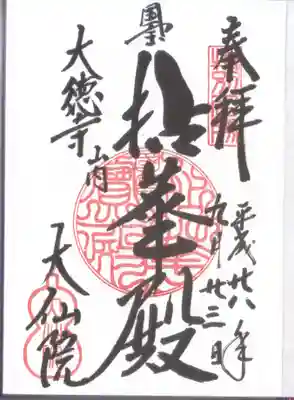 奉拝
平成廿八年
九月廿三日
拈華殿
大徳寺山内
大仙院